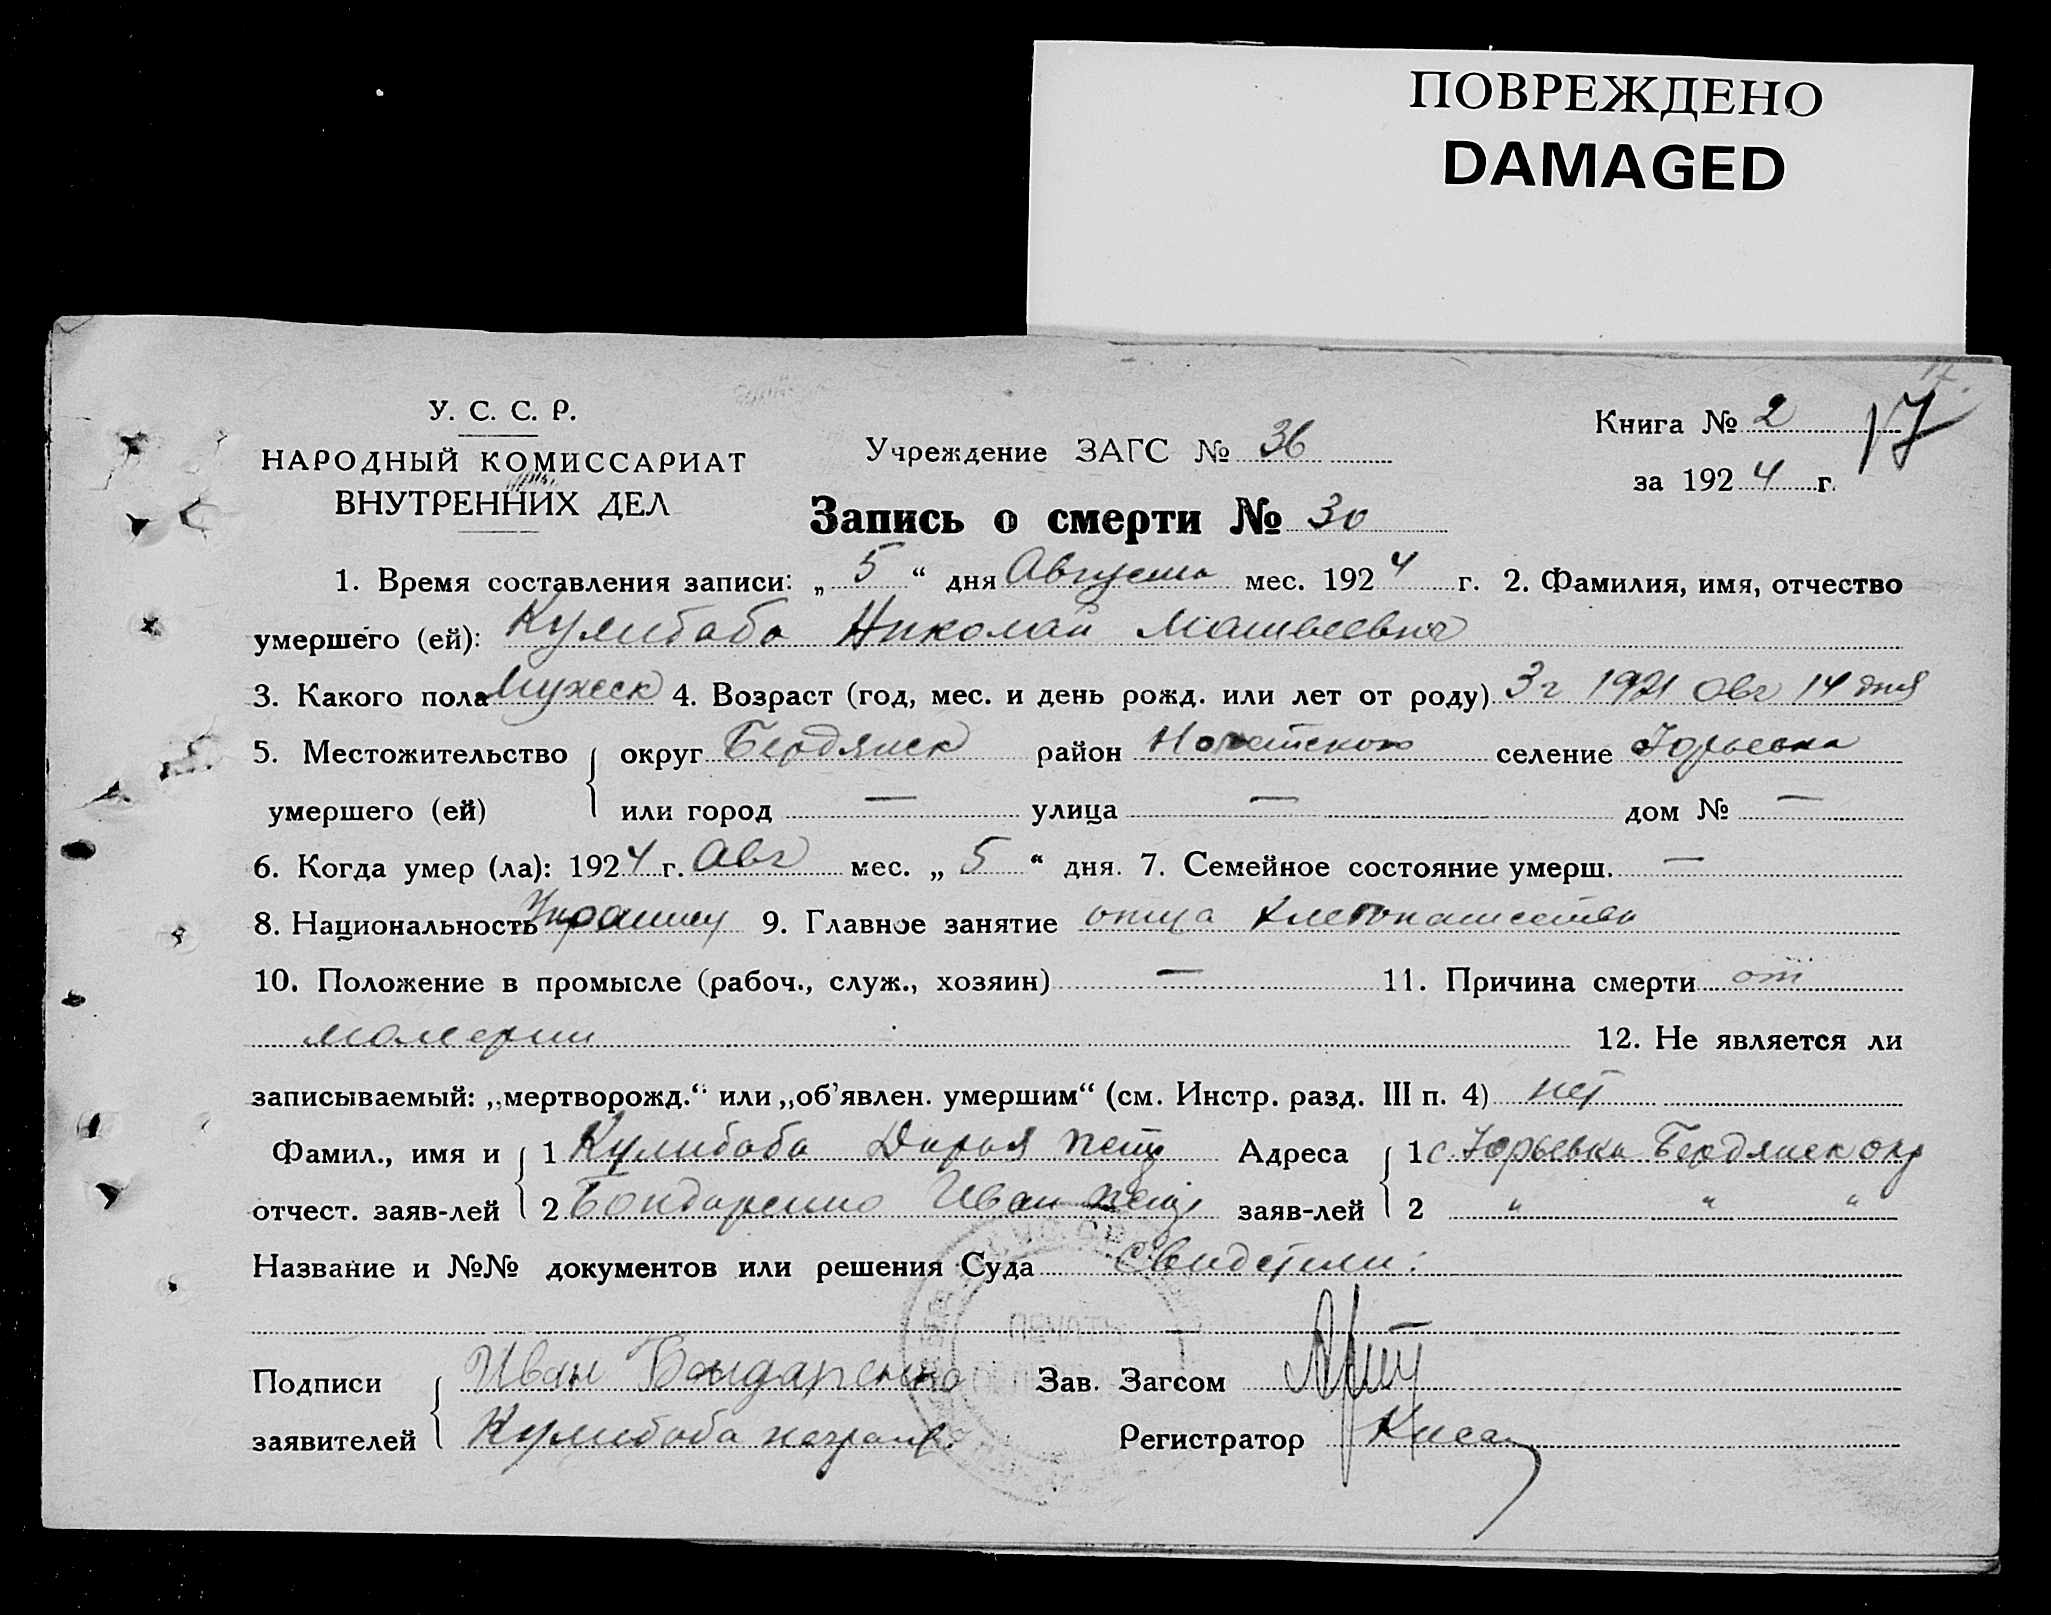 ПОВРЕЖДЕНО
DAMAGED
У. С. С. Р.
НАРОДНЫЙ КОМИССАРИАТ
ВНУТРЕННИХ ДЕЛ
Учреждение ЗАГС № 36
Книга № 2 17
за 1924 г.
Запись о смерти № 30
1. Время составления записи: „ 5 “ дня Августа мес. 1924 г. 2. Фамилия, имя, отчество
умершего (ей): Кулибаба Николай Матвеевич
3. Какого пола Мужеск 4. Возраст (год, мес. и день рожд. или лет от роду) 3 г 1921 Авг 14 дня
5. Местожительство { округ Бердянск район селение Юрьевка
умершего (ей) или город — улица — дом № —
6. Когда умер (ла): 1924 г. Авг мес. „ 5 “ дня. 7. Семейное состояние умерш. —
8. Национальность Украинец 9. Главное занятие отца хлебопашество
10. Положение в промысле (рабоч., служ., хозяин) — 11. Причина смерти от
малерии 12. Не является ли
записываемый: „мертворожд.“ или „об’явлен. умершим“ (см. Инстр. разд. III п. 4) нет
Фамил., имя и { 1 Кулибаба Дарья Петр Адреса { 1 с. Юрьевка Бердянск окр
отчест. заяв-лей 2 Бондаренко Иван Петр заяв-лей 2 " " "
Название и №№ документов или решения Суда Свидетели:
ПЕЧАТЬ
Подписи { Иван Бондаренко Зав. Загсом
заявителей Кулибаба неграм. Регистратор